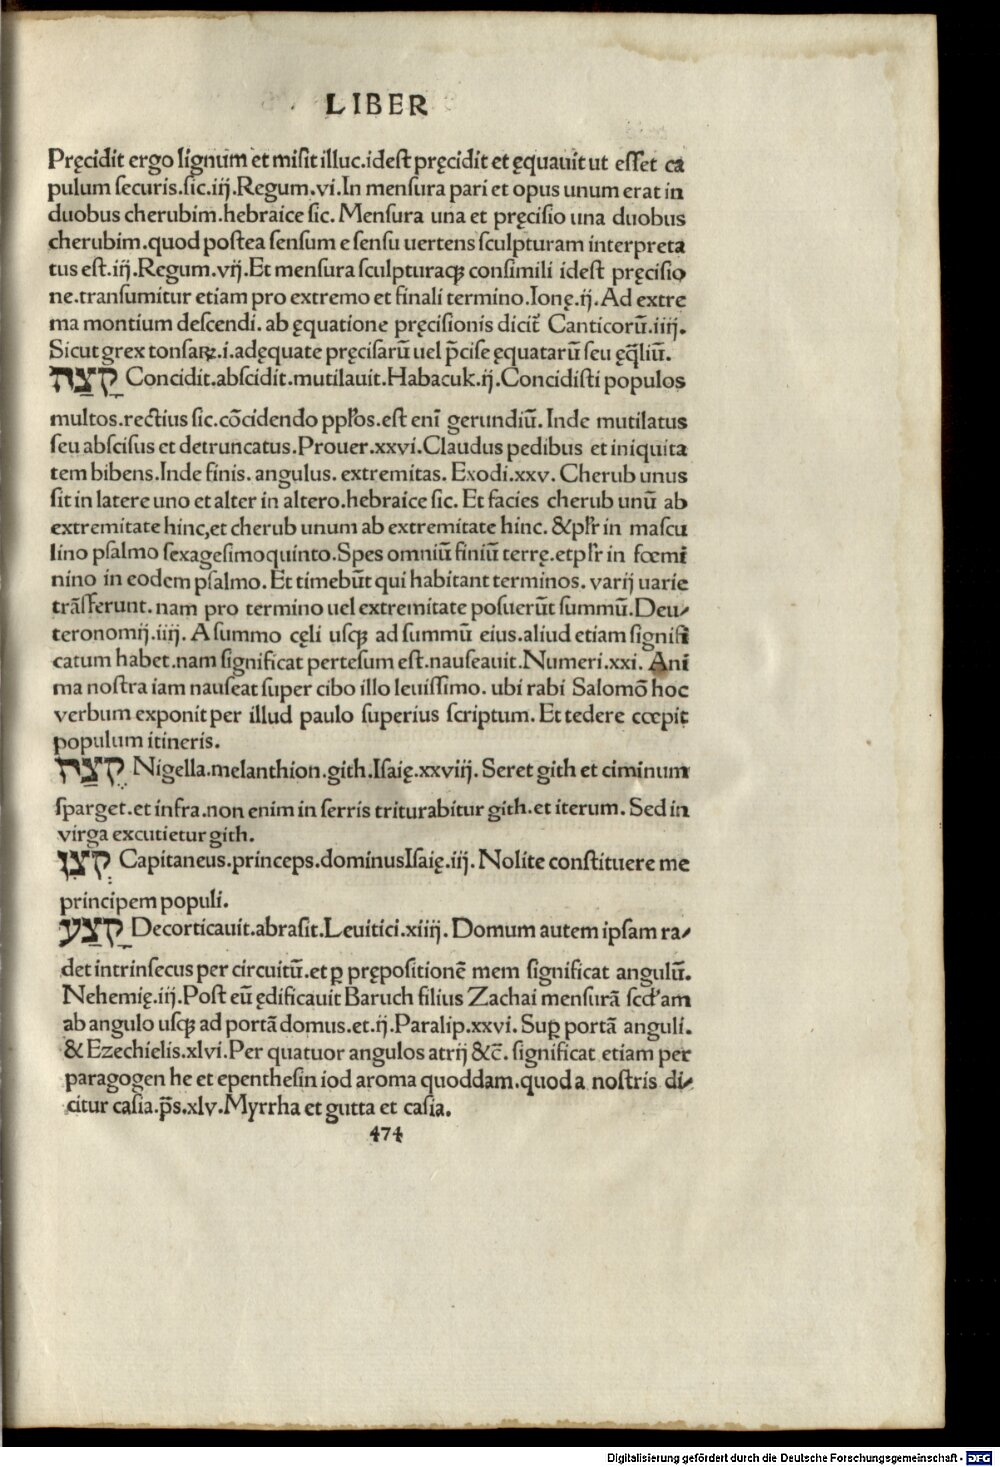 LIBER
Pręcidit ergo lignum et misit illuc.idest pręcidit et ęquauit ut esset ca
pulum securis.sic.iij.Regum.vi.In mensura pari et opus unum erat in
duobus cherubim.hebraice sic. Mensura una et pręcisio una duobus
cherubim.quod postea sensum e sensu uertens sculpturam interpreta
tus est.iij.Regum.vij.Et mensura sculpturaqꝫ consimili idest pręcisio
ne.transumitur etiam pro extremo et finali termino.Ionę.ij.Ad extre
ma montium descendi.ab ęquatione pręcisionis dicit̃ Canticorū.iiij.
Sicut grex tonsaꝝ.i.adęquate pręcisarū uel p̄cise ęquatarū seu ęq̄liū.
קָצַה Concidit.abscidit.mutilauit.Habacuk.ij.Concidisti populos
multos.rectius sic.cōcidendo pplōs.est enī gerundiū.Inde mutilatus
seu abscisus et detruncatus.Prouer.xxvi.Claudus pedibus et iniquita
tem bibens.Inde finis.angulus.extremitas.Exodi.xxv.Cherub unus
sit in latere uno et alter in altero.hebraice sic.Et facies cherub unū ab
extremitate hinc,et cherub unum ab extremitate hinc.&pl̄r in mascu
lino psalmo sexagesimoquinto.Spes omniū finiū terrę.et pl̄r in fœmi
nino in eodem psalmo.Et timebūt qui habitant terminos.varij uarie
trāsferunt.nam pro termino uel extremitate posuerūt summū.Deu-
teronomij.iiij.A summo cęli usqꝫ ad summū eius.aliud etiam signifi
catum habet.nam significat pertesum est.nauseauit.Numeri.xxi.Ani
ma nostra iam nauseat super cibo illo leuissimo.ubi rabi Salomō hoc
verbum exponit per illud paulo superius scriptum.Et tedere cœpit
populum itineris.
קֶצַח Nigella.melanthion.gith.Isaię.xxviij.Seret gith et ciminum
sparget.et infra.non enim in serris triturabitur gith.et iterum.Sed in
virga excutietur gith.
קְצִן Capitaneus.princeps.dominus Isaię.iij.Nolite constituere me
principem populi.
קָצַע Decorticauit.abrasit.Leuitici.xiiij.Domum autem ipsam ra-
det intrinsecus per circuitū.et ꝑ prępositionē mem significat angulū.
Nehemię.iij.Post eū ędificauit Baruch filius Zachai mensurā scd̄am
ab angulo usqꝫ ad portā domus.et.ij.Paralip.xxvi.Suꝑ portā anguli.
&Ezechielis.xlvi.Per quatuor angulos atrij &c̄.significat etiam per
paragogen he et epenthesin iod aroma quoddam.quod a nostris di-
citur casia.p̄s.xlv.Myrrha et gutta et casia.
474
Digitalisierung gefördert durch die Deutsche Forschungsgemeinschaft - DFG